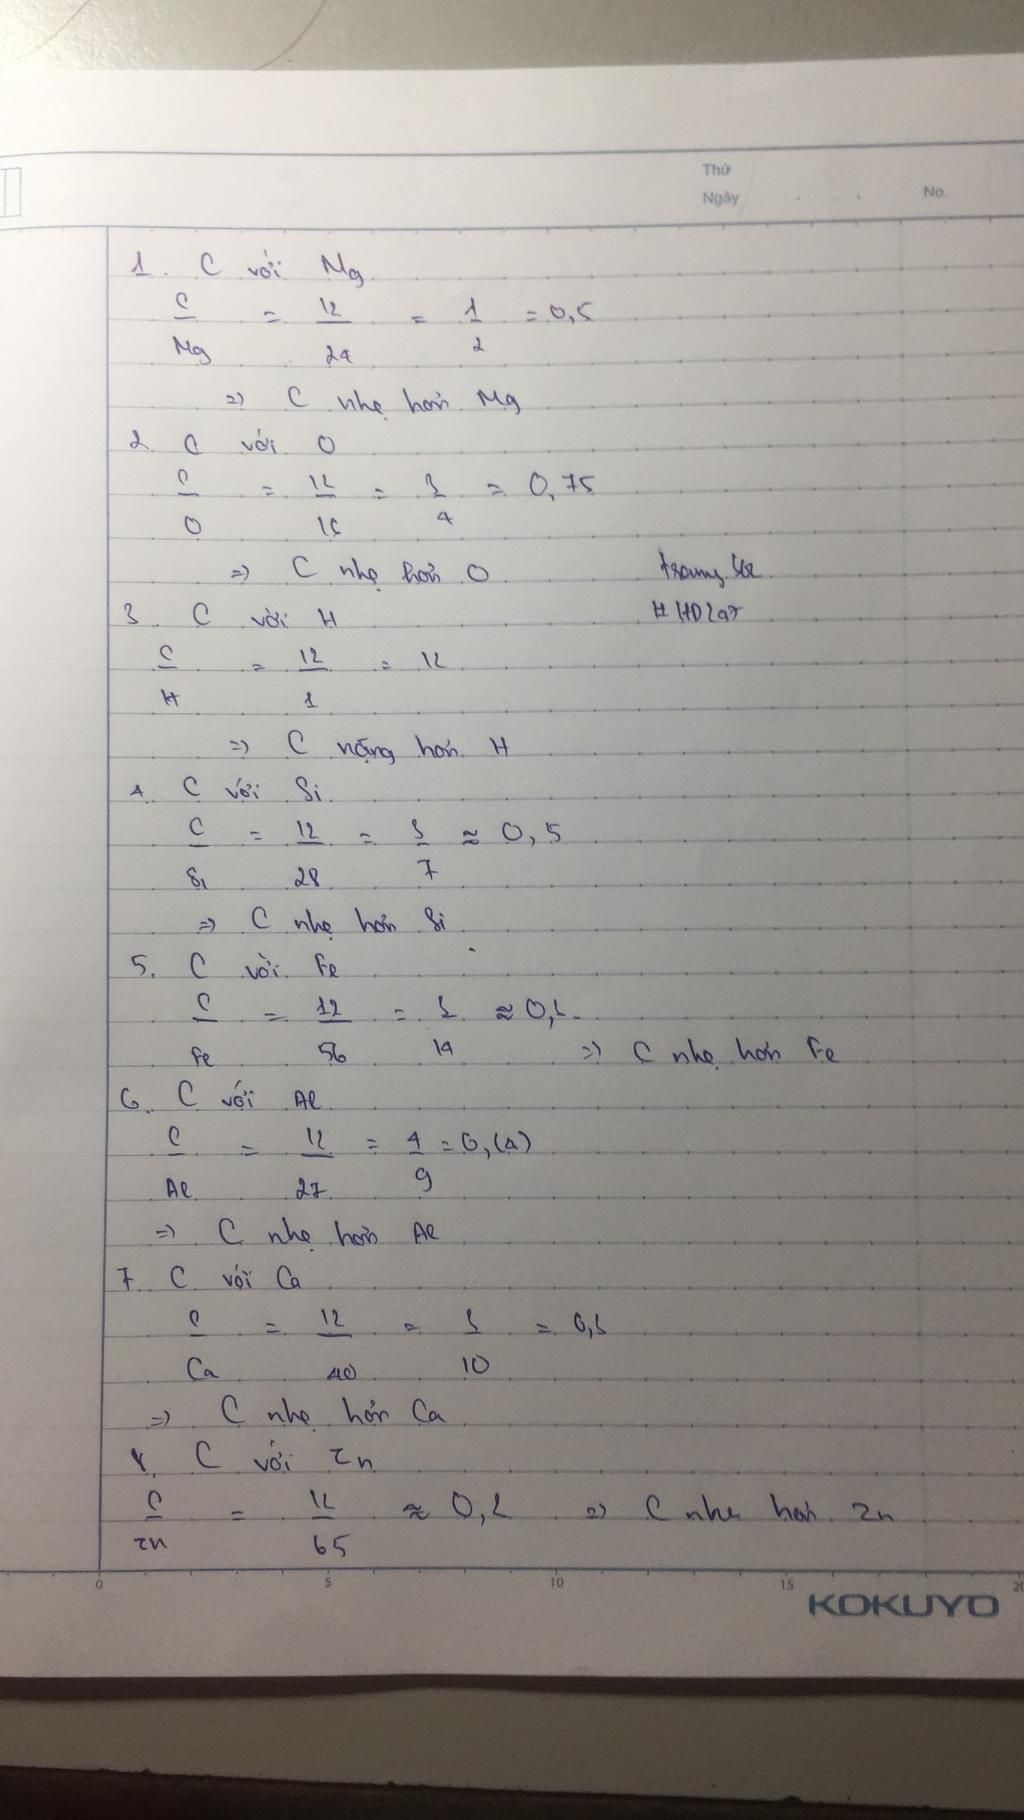 Thứ
Ngày No.
1. C với Mg
C/Mg = 12/24 = 1/2 = 0,5
=> C nhẹ hơn Mg
2. C với O
C/O = 12/16 = 3/4 = 0,75
=> C nhẹ hơn O
3. C với H
C/H = 12/1 = 12
=> C nặng hơn H
4. C với Si
C/Si = 12/28 = 3/7 ≈ 0,5
=> C nhẹ hơn Si
5. C với Fe
C/Fe = 12/56 = 3/14 ≈ 0,2 => C nhẹ hơn Fe
6. C với Al
C/Al = 12/27 = 4/9 = 0,(4)
=> C nhẹ hơn Al
7. C với Ca
C/Ca = 12/40 = 3/10 = 0,3
=> C nhẹ hơn Ca
8. C với Zn
C/Zn = 12/65 ≈ 0,2 => C nhẹ hơn Zn
0 5 10 15 20
KOKUYO